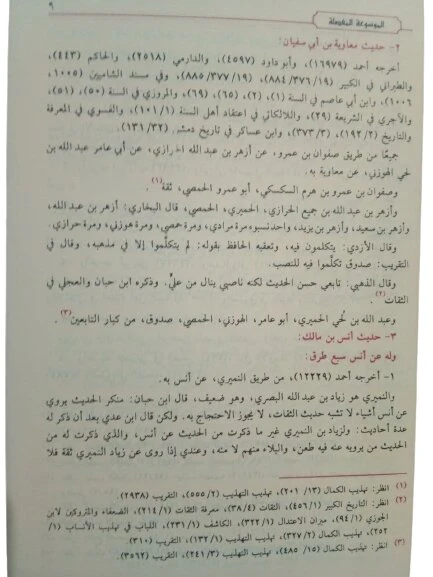 الموسوعة المفصلة
٩
٢- حديث معاوية بن أبي سفيان:
أخرجه أحمد (١٦٩٧٩)، وأبو داود (٤٥٩٧)، والدارمي (٢٥١٨)، والحاكم (٤٤٣)،
والطبراني في الكبير (٣٧٦/١٩/ ٨٨٤)، (٣٧٧/١٩/ ٨٨٥)، وفي مسند الشاميين (١٠٠٥،
١٠٠٦)، وابن أبي عاصم في السنة (١)، (٢)، (٦٥)، (٦٩)، والمروزي في السنة (٥٠)، (٥١)،
والآجري في الشريعة (٢٩)، واللالكائي في اعتقاد أهل السنة (١٠١/١)، والفسوي في المعرفة
والتاريخ (١٩٢/٢)، (٣٧٣/٣)، وابن عساكر في تاريخ دمشق (١٣١/٣٢).
جميعًا من طريق صفوان بن عمرو، عن أزهر بن عبد الله الحرازي، عن أبي عامر عبد الله بن
لحي الهوزني، عن معاوية به.
وصفوان بن عمرو بن هرم السكسكي، أبو عمرو الحمصي، ثقة(١).
وأزهر بن عبد الله بن جميع الحرازي، الحميري، الحمصي، قال البخاري: أزهر بن عبد الله،
وأزهر بن سعيد، وأزهر بن يزيد، واحد نسبوه مرة مرادي، ومرة حمصي، ومرة هوزني، ومرة حرازي.
وقال الأزدي: يتكلمون فيه، وتعقبه الحافظ بقوله: لم يتكلموا إلا في مذهبه، وقال في
التقريب: صدوق تكلموا فيه للنصب.
وقال الذهبي: تابعي حسن الحديث لكنه ناصبي ينال من عليٍّ. وذكره ابن حبان والعجلي في
الثقات(٢).
وعبد الله بن لُحي الحميري، أبو عامر، الهوزني، الحمصي، صدوق، من كبار التابعين(٣).
٣- حديث أنس بن مالك:
وله عن أنس سبع طرق:
١- أخرجه أحمد (١٢٢٢٩)، من طريق النميري، عن أنس به.
والنميري هو زياد بن عبد الله البصري، وهو ضعيف، قال ابن حبان: منكر الحديث يروي
عن أنس أشياء لا تشبه حديث الثقات، لا يجوز الاحتجاج به. ولكن قال ابن عدي بعد أن ذكر له
عدة أحاديث: ولزياد بن النميري غير ما ذكرت من الحديث عن أنس، والذي ذكرت له من
الحديث من يرويه عنه فيه طعن، والبلاء منهم لا منه، وعندي إذا روى عن زياد النميري ثقة فلا
(١) انظر: تهذيب الكمال (١٣/ ٢٠١)، تهذيب التهذيب (٥٥٥/٢)، التقريب (٢٩٣٨).
(٢) انظر: التاريخ الكبير (٤٥٦/١)، الثقات (٣٨/٤)، معرفة الثقات (٢١٤/١)، الضعفاء والمتروكين لابن
الجوزي (٩٤/١)، ميزان الاعتدال (٣٢٢/١)، الكاشف (٢٣١/١)، اللباب في تهذيب الأنساب (١/
٢٥٢)، تهذيب الكمال (٣٢٧/٢)، تهذيب التهذيب (١٣٢/١)، التقريب (٣١٠).
(٣) انظر: تهذيب الكمال (١٥/ ٤٨٥)، تهذيب التهذيب (٢٤١/٣)، التقريب (٣٥٦٢).